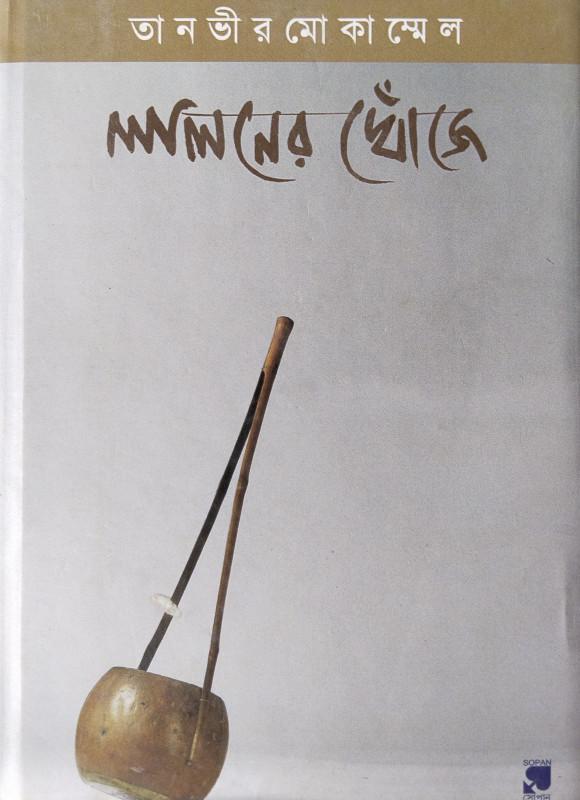 তানভীর মোকাম্মেল
লালনের খোঁজে
SOPAN
সোপান